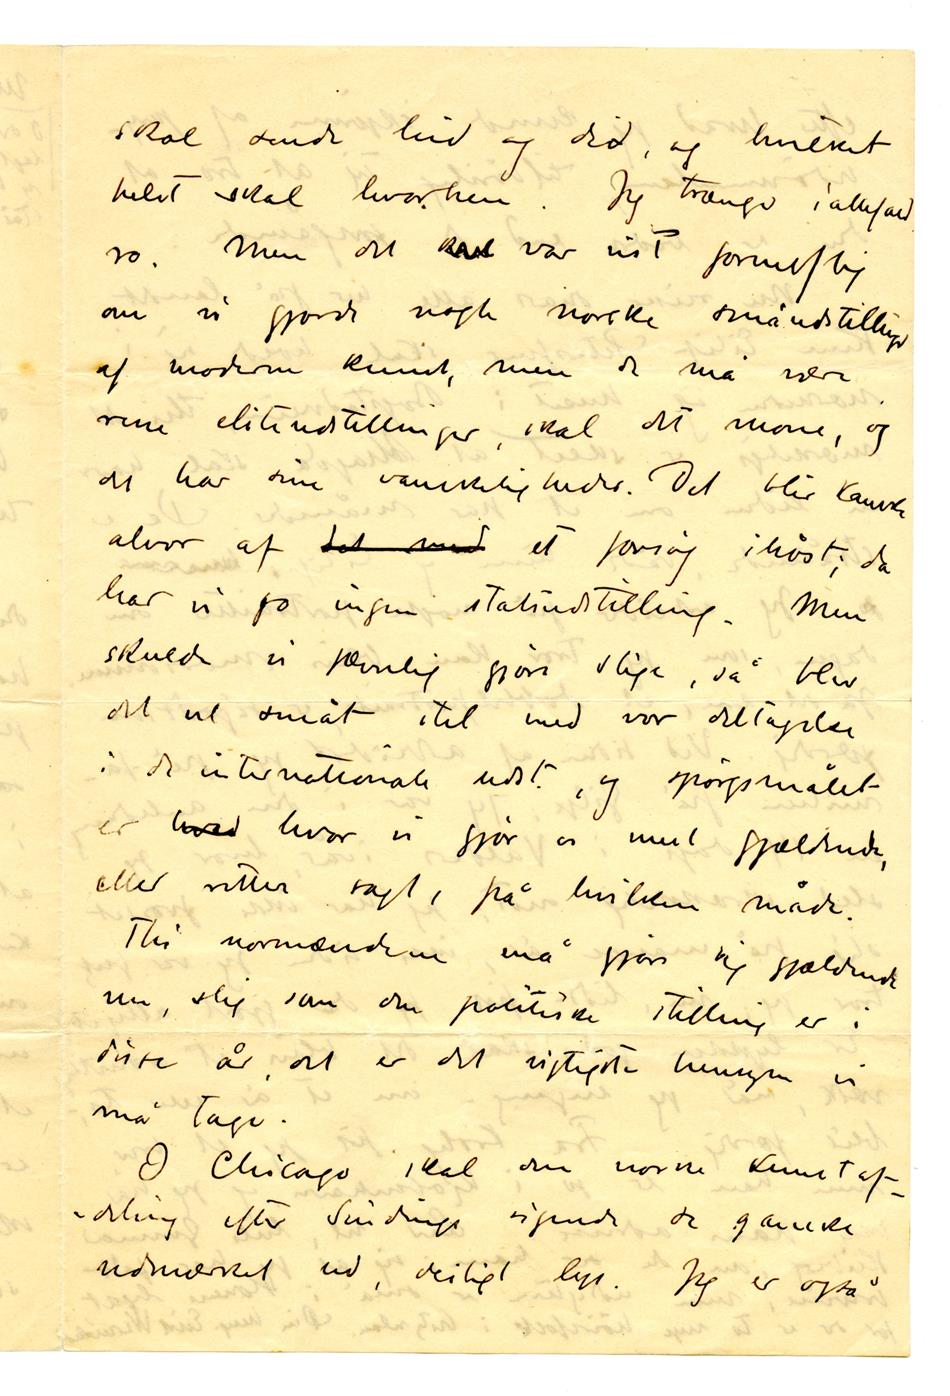 skal sende hid og did, og hvilket
helst skal hvorhen. Jeg trænger iallefald
ro. Men det var vist fornuftig
om vi gjorde nogle norske småudstillinger
af moderne kunst, men de må være
rene eliteudstillinger, skal det mone, og
det har sine vanskeligheder. Det blir kanske
alvor af det med et forsøg ihøst; da
har vi jo ingen statsudstilling. Men
skulde vi jævnlig gjøre slige, så blev
det vel småt stel med vor deltagelse
i de internationale udst., og spørgsmålet
er hvad hvor vi gjør os mest gjældende,
eller rettere sagt, på hvilken måde.
Thi normændene må gjøre sig gjældende
nu, slig som den politiske stilling er i
disse år, det er det vigtigste hensyn vi
må tage.
I Chicago skal den norske kunstaf-
-deling efter Sindings sigende se ganske
udmærket ud, deiligt lys. Jeg er også